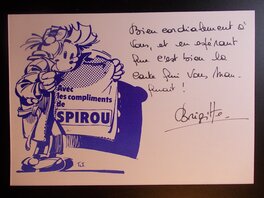 Avec
les compliments
de
SPIROU
Bien cordialement à
Vous, et en espérant
que c'est bien la
carte qui vous man-
quait !
Brigitte